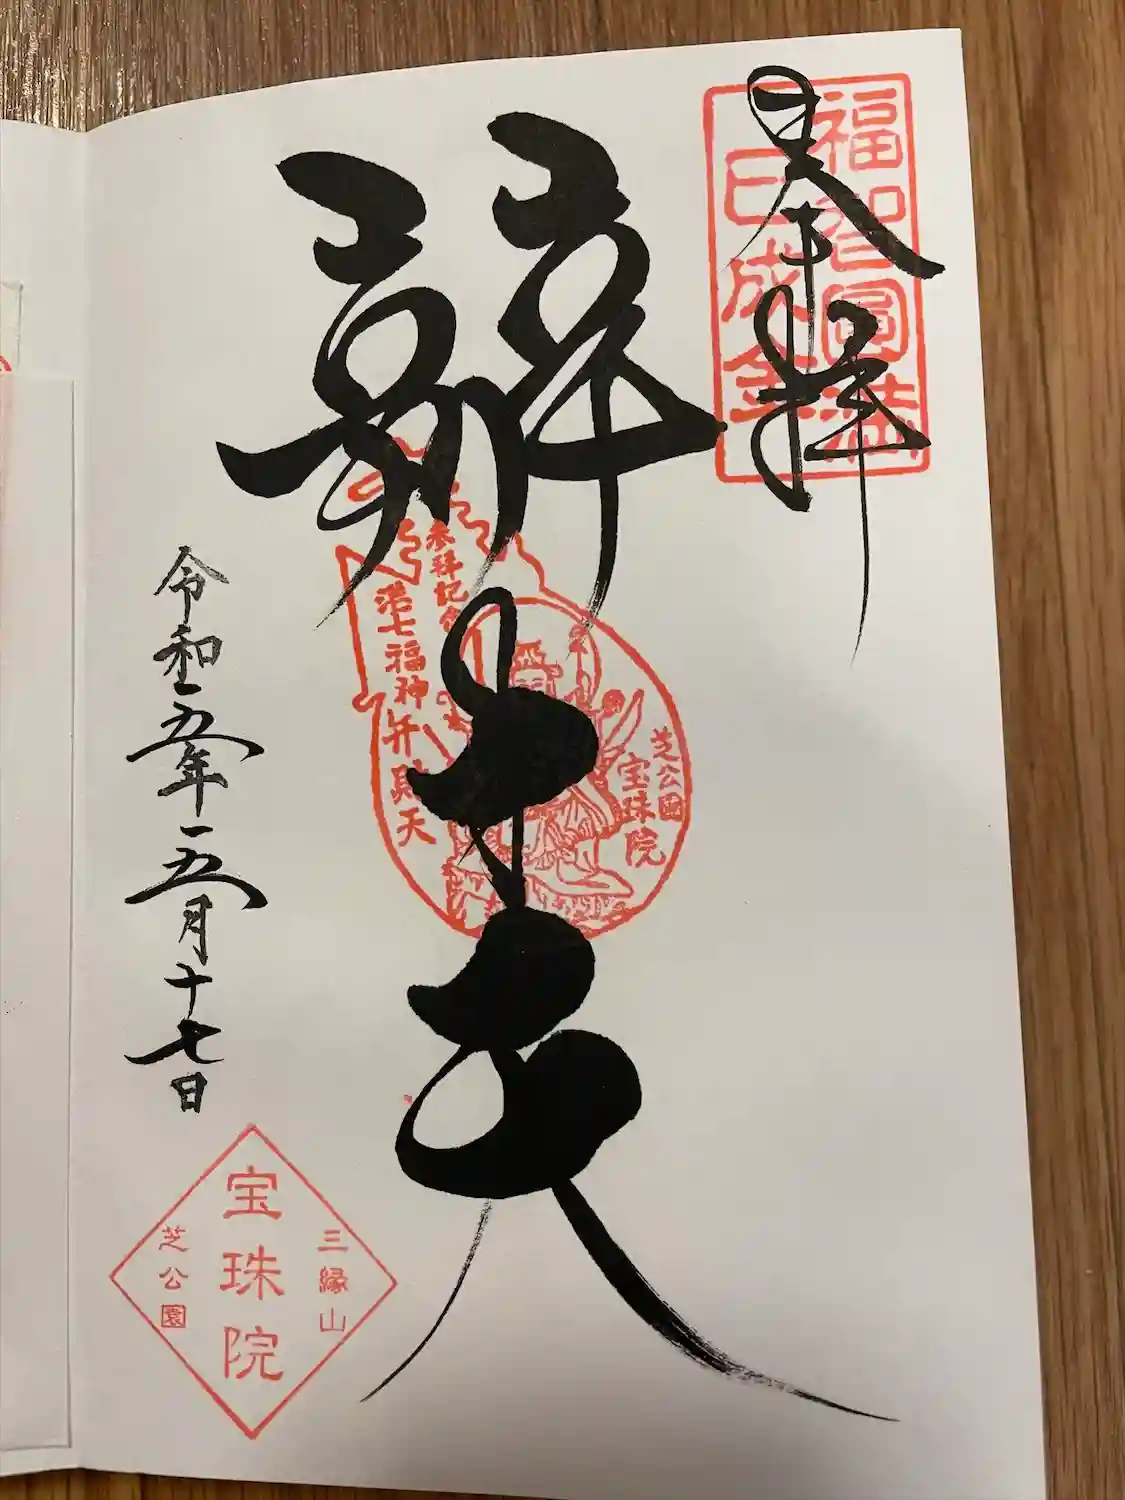 奉拝
福智圓満
巳成金
辨才天
参拝記念
港七福神弁財天
芝公園
宝珠院
令和五年五月十七日
三縁山
宝珠院
芝公園